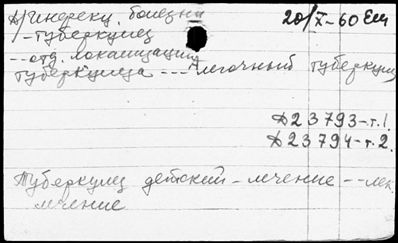 Д/Инфекц. болезни 20/X-60 Ем
-туберкулез
--отд. локализации
туберкулеза --- легочный туберкулез
Д23793-т.1.
Д23794-т.2.
Туберкулез детский - лечение -- лек.
лечение